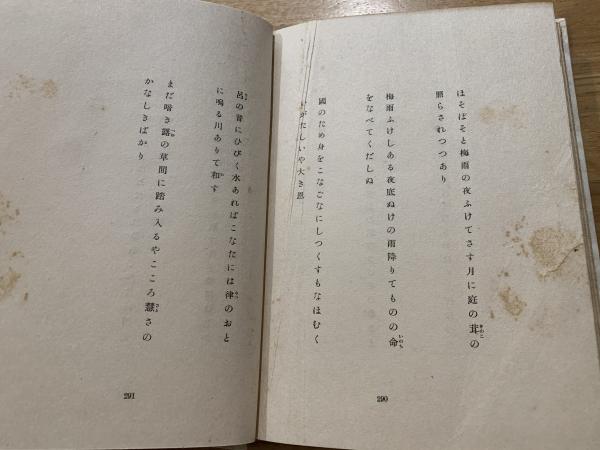 ほそぼそと梅雨の夜ふけてさす月に庭の茸の
照らされつつあり
梅雨ふけしある夜底ぬけの雨降りてものの命
をなべてくだしぬ
國のため身をこなごなにしつくすもなほむく
いがたしいや大き恩
290
呂の音にひびく水あればこなたには律のおと
に鳴る川ありて和す
まだ暗き露の草間に踏み入るやこころ慧さの
かなしきばかり
291